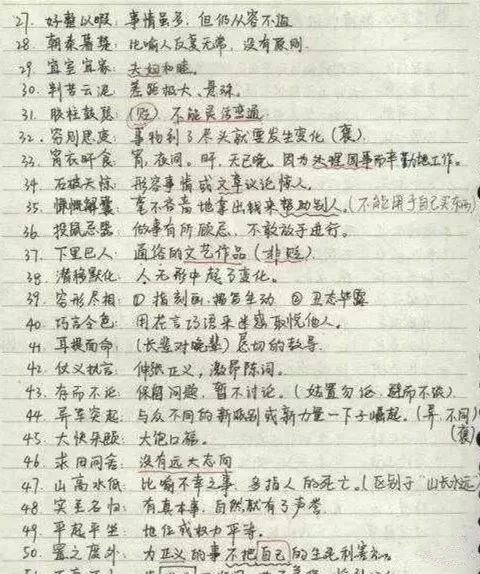 27. 好整以暇：事情虽多，但仍从容不迫
28. 朝秦暮楚：比喻人反复无常，没有原则.
29. 宜室宜家：夫妇和睦。
30. 判若云泥：差距极大、悬殊。
31. 胶柱鼓瑟：(贬) 不能灵活变通
32. 穷则思变：事物到了尽头就要发生变化 (褒)
33. 宵衣旰食：宵，夜间。旰，天已晚。因为处理国事而辛勤地工作。
34. 石破天惊：形容事情或文章议论惊人。
35. 慷慨解囊：毫不吝啬地拿出钱来帮助别人。(不能用于自己买东西)
36. 投鼠忌器：做事有所顾忌，不敢放手进行。
37. 下里巴人：通俗的文艺作品 (非贬)
38. 潜移默化：人无形中起了变化。
39. 穷形尽相：① 指刻画、描写生动 ② 丑态毕露
40. 巧言令色：用花言巧语来迷惑取悦他人。
41. 耳提面命：(长辈对晚辈) 恳切的教导
42. 仗义执言：伸张正义，激昂陈词。
43. 存而不论：保留问题，暂不讨论。(姑置勿论，避而不谈)
44. 异军突起：与众不同的新派别或新力量一下子崛起。(异，不同) (褒)
45. 大快朵颐：大饱口福。
46. 求田问舍：没有远大志向
47. 山高水低：比喻不幸之事，多指人的死亡。(区别于“山长水远”
48. 实至名归：有真本事，自然就有了声誉
49. 平起平坐：地位或权力平等。
50. 置之度外：为正义的事不把自己的生死利害